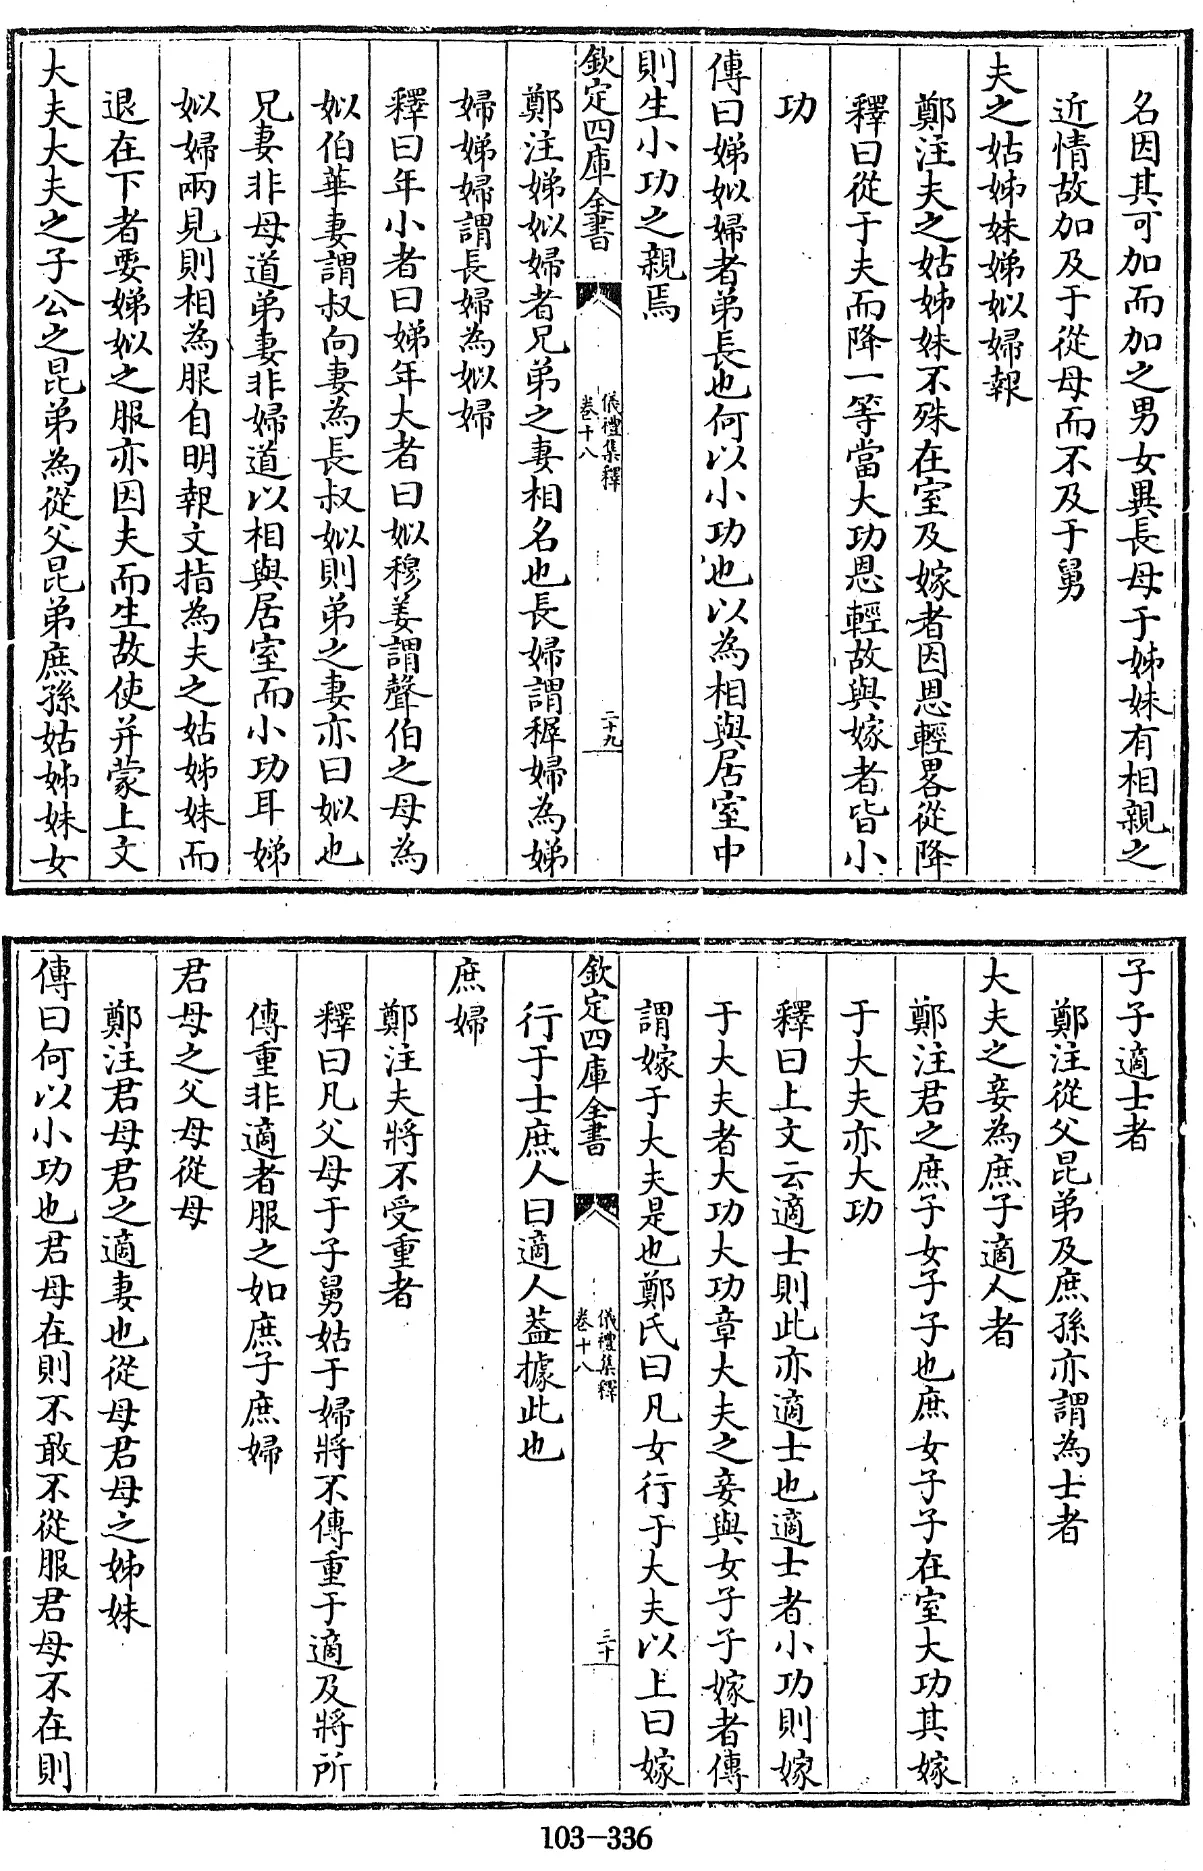 名因其可加而加之男女異長母于姊妹有相親之
近情故加及于從母而不及于舅
夫之姑姊妹娣姒婦報
鄭注夫之姑姊妹不殊在室及嫁者因恩輕畧從降
釋曰從于夫而降一等當大功恩輕故與嫁者皆小
功
傳曰娣姒婦者弟長也何以小功也以為相與居室中
則生小功之親焉
欽定四庫全書
儀禮集釋
卷十八
二十九
鄭注娣姒婦者兄弟之妻相名也長婦謂穉婦為娣
婦娣婦謂長婦為姒婦
釋曰年小者曰娣年大者曰姒穆姜謂聲伯之母為
姒伯華妻謂叔向妻為長叔姒則弟之妻亦曰姒也
兄妻非母道弟妻非婦道以相與居室而小功耳娣
姒婦兩見則相為服自明報文指為夫之姑姊妹而
退在下者要娣姒之服亦因夫而生故使并蒙上文
大夫大夫之子公之昆弟為從父昆弟庶孫姑姊妹女
子子適士者
鄭注從父昆弟及庶孫亦謂為士者
大夫之妾為庶子適人者
鄭注君之庶子女子子也庶女子子在室大功其嫁
于大夫亦大功
釋曰上文云適士則此亦適士也適士者小功則嫁
于大夫者大功大功章大夫之妾與女子子嫁者傳
謂嫁于大夫是也鄭氏曰凡女行于大夫以上曰嫁
欽定四庫全書
儀禮集釋
卷十八
三十
行于士庶人曰適人葢據此也
庶婦
鄭注夫將不受重者
釋曰凡父母于子舅姑于婦將不傳重于適及將所
傳重非適者服之如庶子庶婦
君母之父母從母
鄭注君母君之適妻也從母君母之姊妹
傳曰何以小功也君母在則不敢不從服君母不在則
103-336